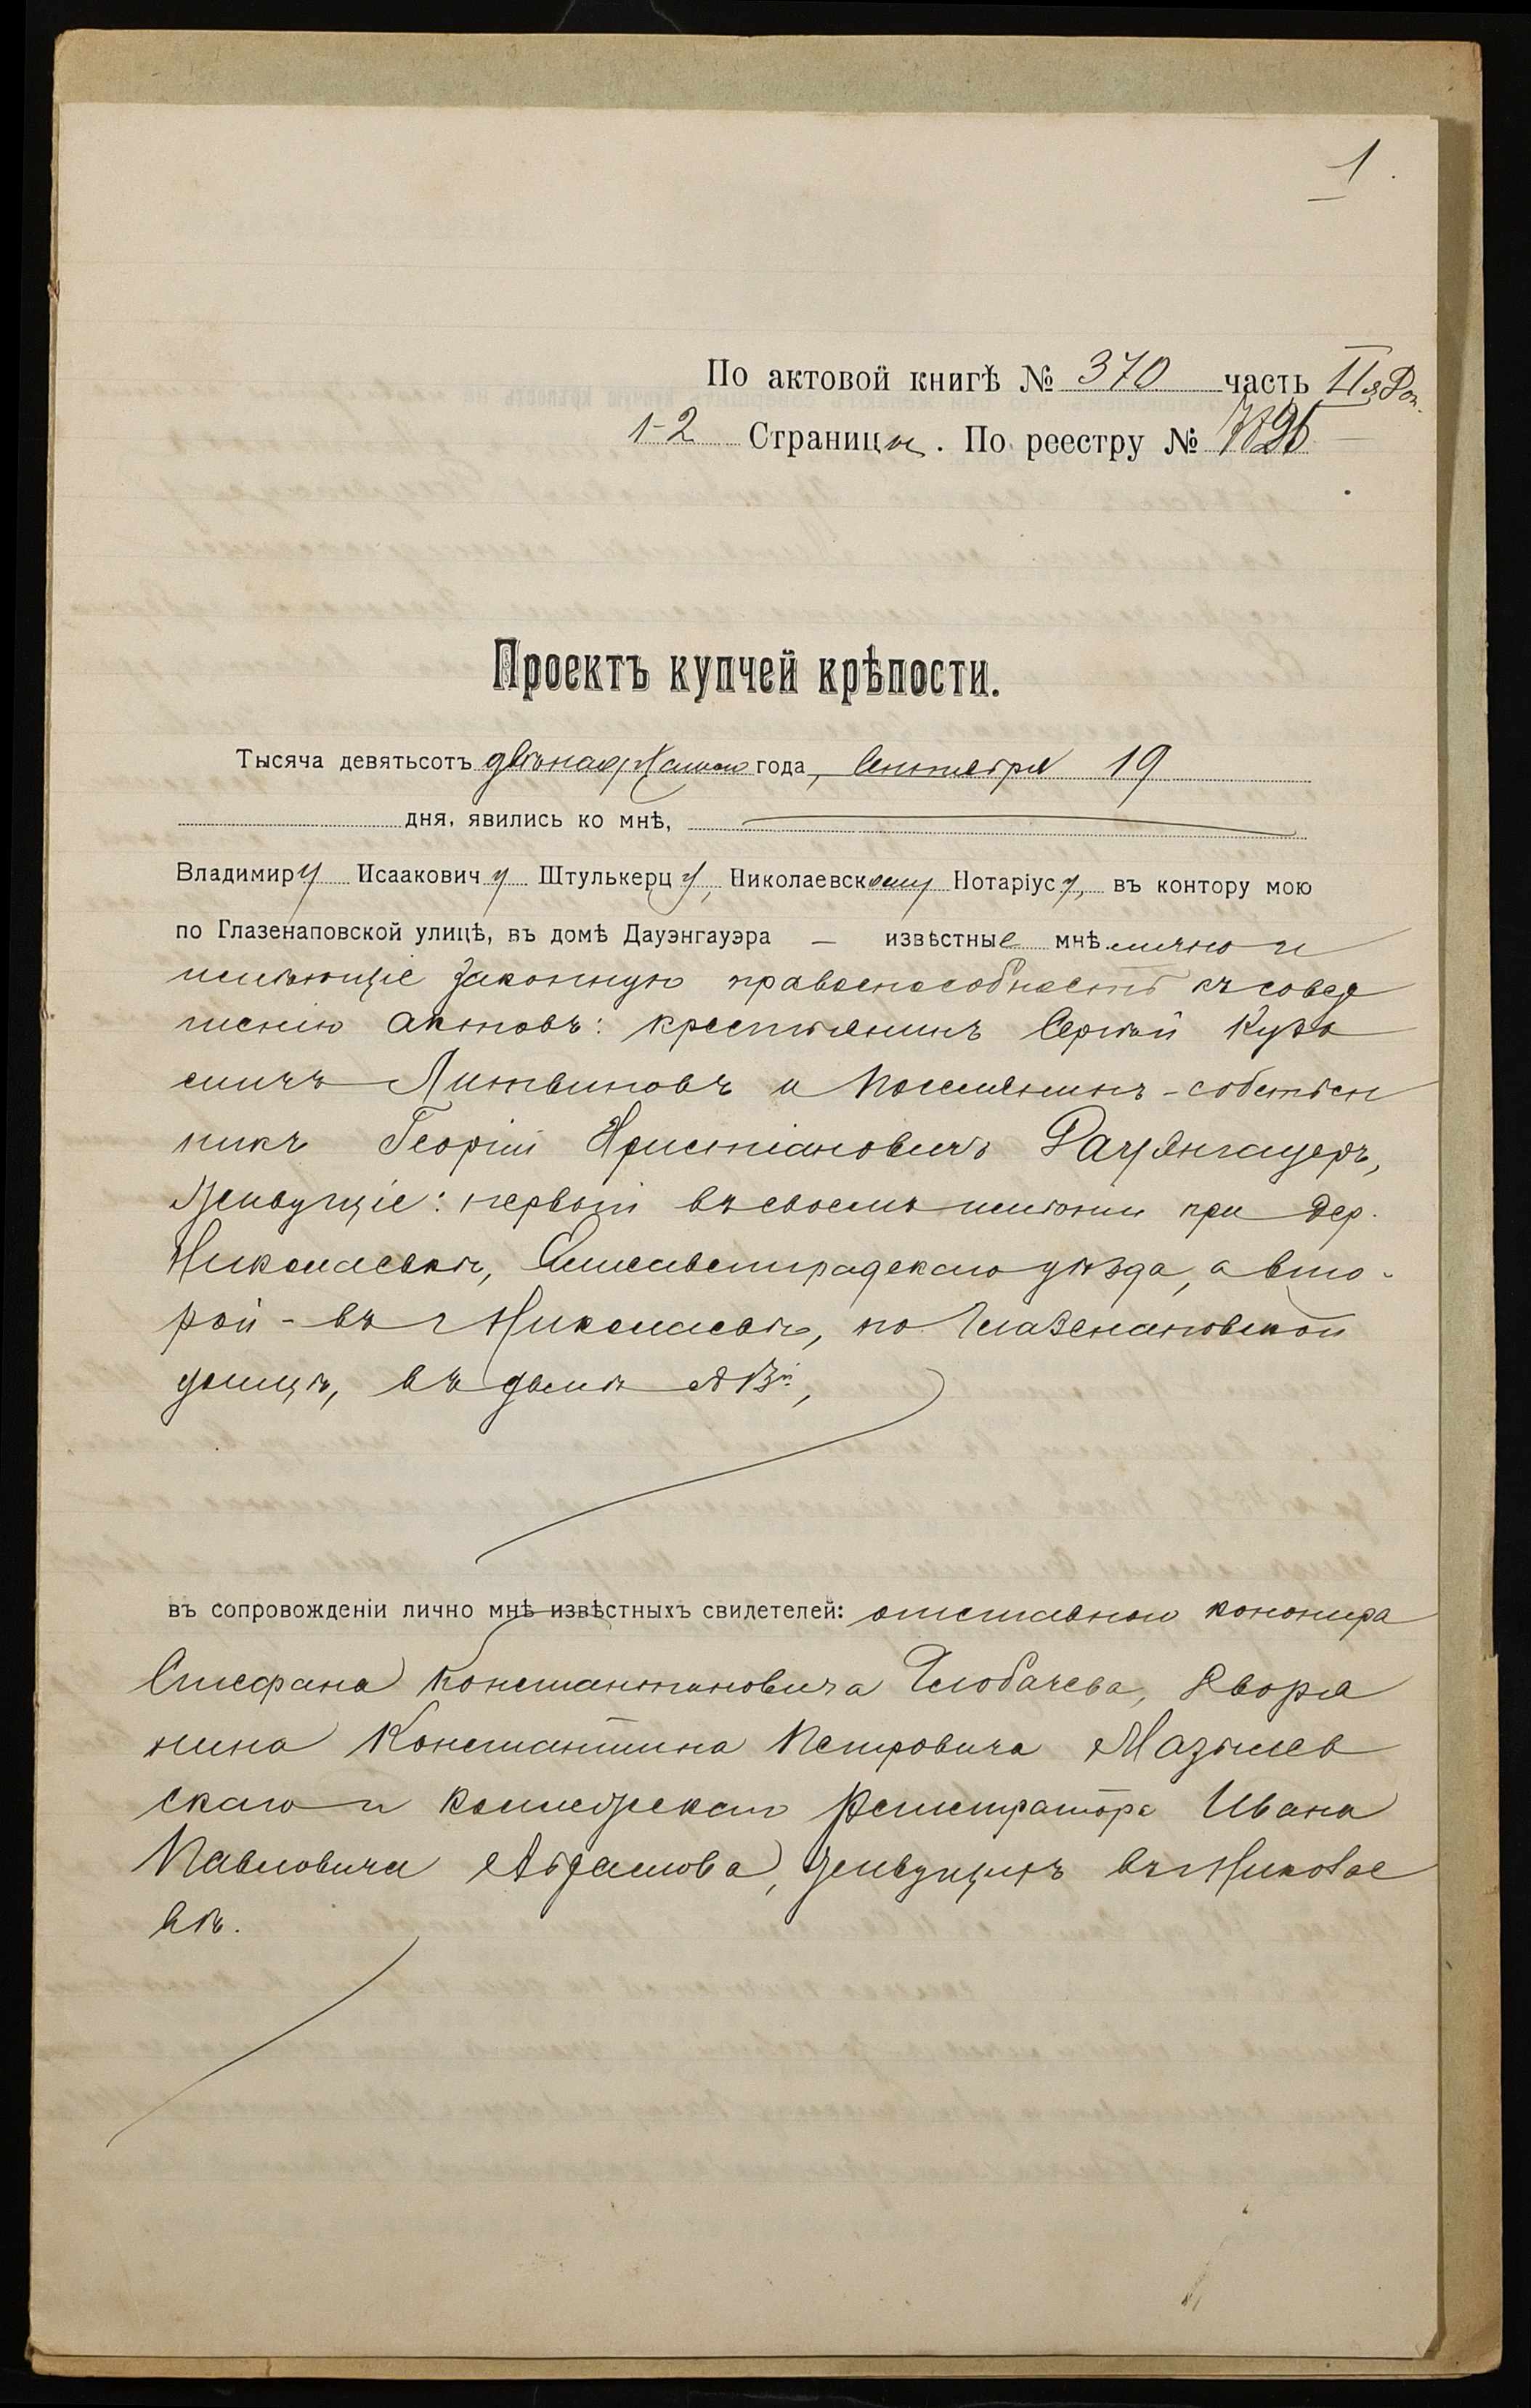 1.
По актовой книгѣ № 370 часть II я
1-2 Страницы. По реестру №
Проектъ купчей крѣпости.
Тысяча девятьсотъ двѣнадцатаго года, Сентября 19
дня, явились ко мнѣ,
Владимиру Исааковичу Штулькерцу, Николаевскому Нотаріусу, въ контору мою
по Глазенаповской улицѣ, въ домѣ Дауэнгауэра — извѣстные мнѣ лично и
имѣющіе законную правоспособность къ совер
шенію актовъ: крестьянинъ Сергѣй Кузь
мичъ Литвиновъ и поселянинъ-собствен
никъ Георгій Христіановичъ
живущіе: первый въ своемъ имѣніи при дер.
Николаевкѣ, Елисаветградскаго уѣзда, а вто-
рой - въ г Николаевѣ, по Глазенаповской
улицѣ, въ домѣ
въ сопровожденіи лично мнѣ извѣстныхъ свидетелей: отставного
Стефана Константиновича Глобачева, дворя
нина Константина Петровича
скаго и коллежскаго регистратора Ивана
Павловича живущихъ въ Никола
вѣ.